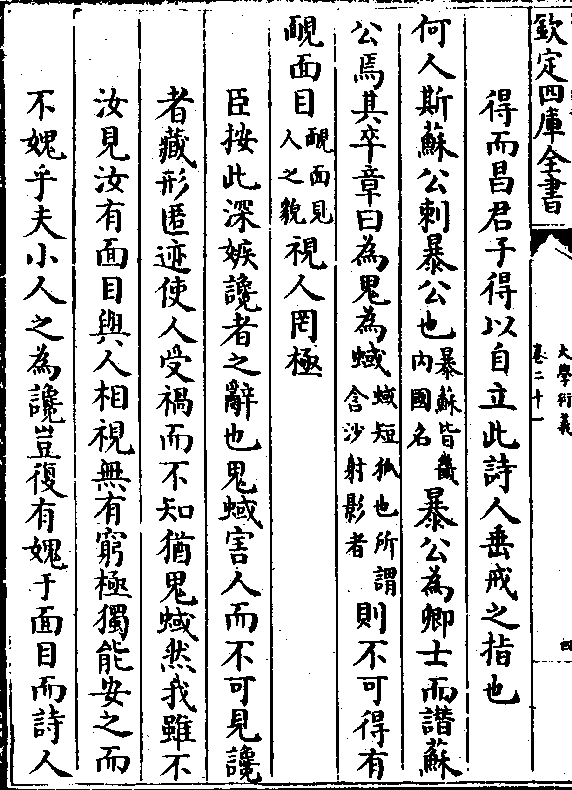 欽定四庫全書
大學衍義
卷二十一
四
得而昌君子得以自立此詩人垂戒之指也
何人斯蘇公刺暴公也暴蘇皆畿內國名暴公為卿士而譖蘇
公焉其卒章曰為鬼為蜮蜮短狐也所謂含沙射影者則不可得有
靦面目靦面見人之貌視人罔極
臣按此深嫉讒者之辭也鬼蜮害人而不可見讒
者藏形匿迹使人受禍而不知猶鬼蜮然我雖不
汝見汝有面目與人相視無有窮極獨能安之而
不媿乎夫小人之為讒豈復有媿于面目而詩人